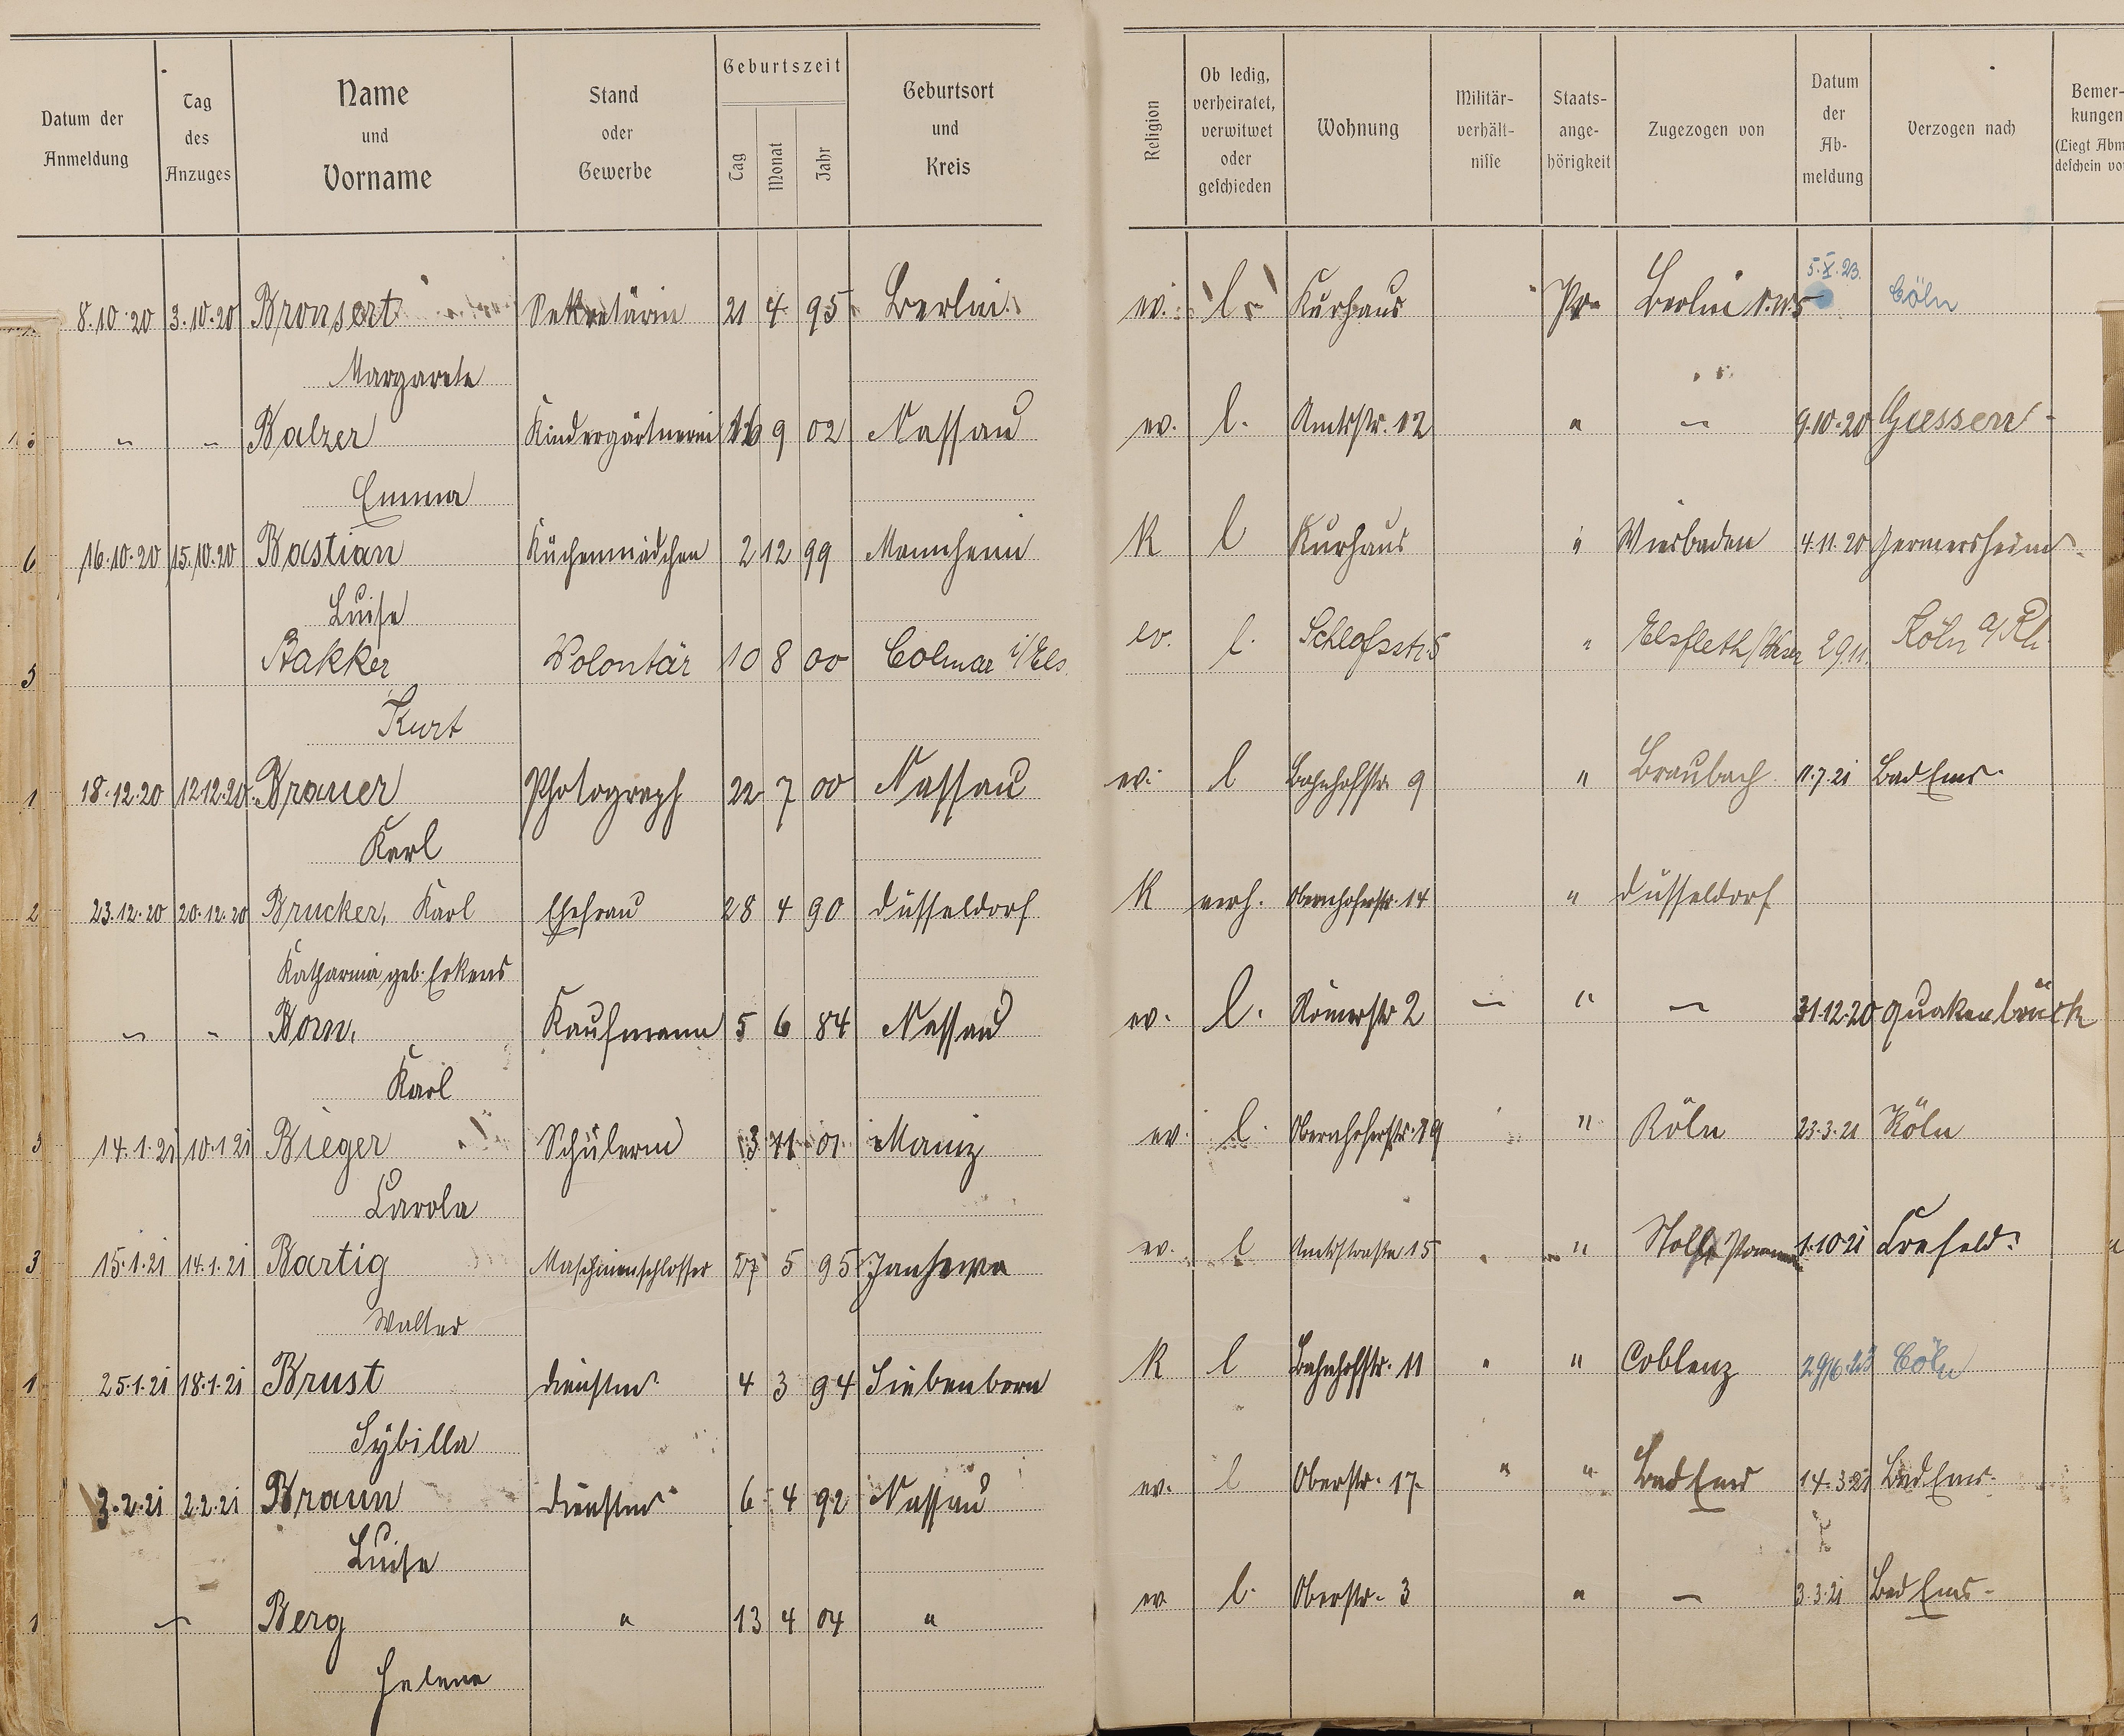 Datum der Anmeldung | Tag des Anzuges | Name und Vorname | Stand oder Gewerbe | Geburtszeit Tag Monat Jahr | Geburtsort und Kreis | Religion | Ob ledig, verheiratet, verwitwet oder geschieden | Wohnung | Militär-verhält-nisse | Staats-ange-hörigkeit | Zugezogen von | Datum der Ab-meldung | Verzogen nach | Bemer-kungen (Liegt Abm deschein vo
8.10.20 3.10.20 Bronsert Sekretärin 21 4 95 Berlin ev. l. Kurhaus Pr. Berlin N.W.5 5.X.23. Cöln
Margarete
" " Balzer Kindergärtnerin 16 9 02 Nassau ev. l. Amtsstr. 12 " — 9.10.20 Giessen
Emma
6 16.10.20 15.10.20 Bastian Küchenmädchen 2 12 99 Mannheim K l Kurhaus " Wiesbaden 4.11.20 Germersheim
Luise
5 Bakker Volontär 10 8 00 Colmar i/Els. ev. l. Schloßstr. 5 " Elsfleth/ 29.11. Köln a/Rh.
Kurt
1 18.12.20 12.12.20 Brauer Photograph 22 7 00 Nassau ev. l Bahnhofstr. 9 " Braubach 11.7.21 Bad Ems
Karl
2 23.12.20 20.12.20 Brucker, Karl Ehefrau 28 4 90 Düsseldorf K verh. Obernhoferstr. 14 " Düsseldorf
Katharina geb. Erkens
" " Born, Kaufmann 5 6 84 Nassau ev. l. Römerstr 2 — " — 31.12.20 Quakenbrück
Karl
14.1.21 10.1.21 Bieger Schülerin 3 11 01 Mainz ev. l. Obernhoferstr. 19 " Köln 23.3.21 Köln
Carola
3 15.1.21 14.1.21 Bartig Maschinenschlosser 27 5 95 ev. l Amtsstrasse 15 " 1.10.21 Crefeld
Walter
1 25.1.21 18.1.21 Brust Dienstm. 4 3 94 Siebenborn K l Bahnhofstr. 11 " " Coblenz 29/6.23 Cöln
Sybilla
3.2.21 2.2.21 Braun Dienstm. 6 4 92 Nassau ev. l Oberstr. 17. " " Bad Ems 14.3.21 Bad Ems
Luise
1 " Berg " 13 4 04 " ev. l. Oberstr. 3 " — 3.3.21 Bad Ems
Helene